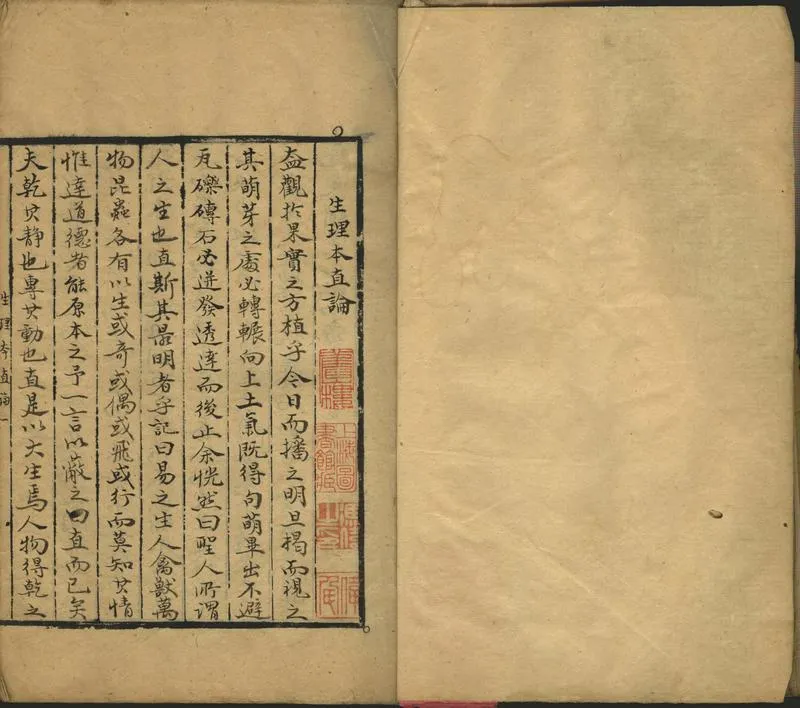 生理本直論
盍觀於果實之方植乎今日而播之明旦揭而視之
其萌芽之處必轉輾向上土氣既得句萌畢出不避
瓦礫磚石必迸發透達而後止余恍然曰聖人所謂
人之生也直斯其最明者乎記曰易之生人禽獸萬
物昆蟲各有以生或奇或偶或飛或行而莫知其情
惟達道德者能原本之予一言以蔽之曰直而已矣
夫乾其靜也專其動也直是以大生焉人物得乾之
生理本直論一
上海圖書館藏